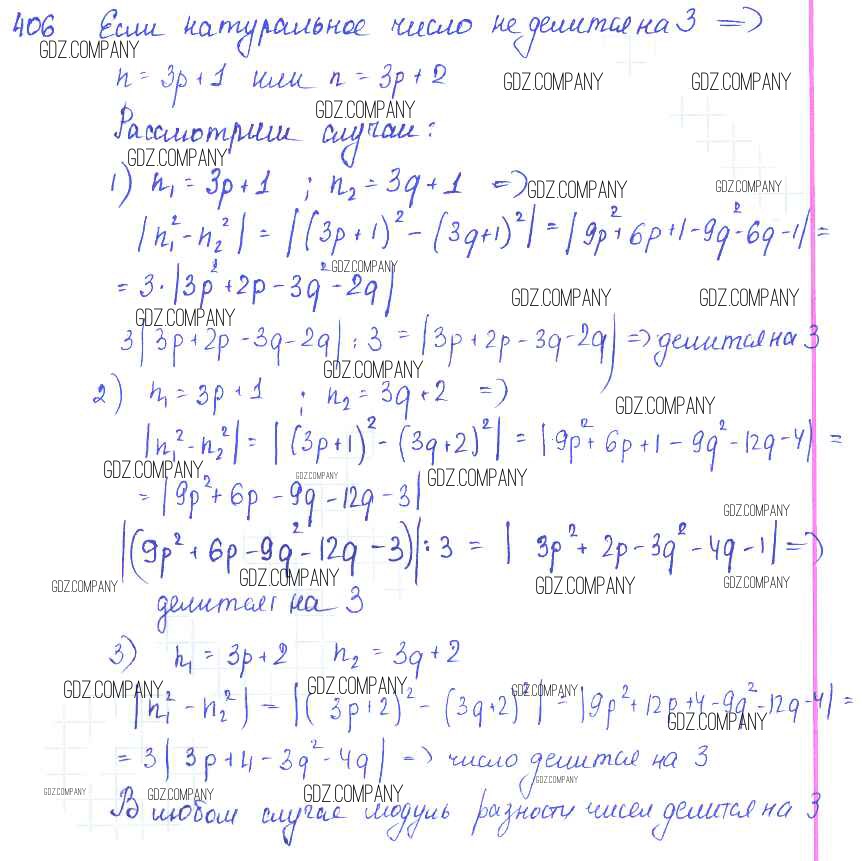 406 Если натуральное число не делится на 3 =>
GDZ.COMPANY
n = 3p+1 или n = 3p+2
GDZ.COMPANY GDZ.COMPANY
GDZ.COMPANY
Рассмотрим случаи:
GDZ.COMPANY
1) n₁ = 3p+1 ; n₂ = 3q+1 =>
GDZ.COMPANY GDZ.COMPANY
|n₁² - n₂²| = |(3p+1)² - (3q+1)²| = |9p²+6p+1-9q²-6q-1| =
GDZ.COMPANY
= 3·|3p²+2p-3q²-2q|
GDZ.COMPANY GDZ.COMPANY
GDZ.COMPANY
3|3p+2p-3q-2q| : 3 = |3p+2p-3q-2q| => делится на 3
GDZ.COMPANY
2) n₁ = 3p+1 ; n₂ = 3q+2 =>
GDZ.COMPANY
|n₁²-n₂²| = |(3p+1)² - (3q+2)²| = |9p²+6p+1-9q²-12q-4| =
GDZ.COMPANY GDZ.COMPANY GDZ.COMPANY
= |9p²+6p-9q-12q-3|
GDZ.COMPANY
|(9p²+6p-9q²-12q-3)| : 3 = |3p²+2p-3q²-4q-1| =>
GDZ.COMPANY GDZ.COMPANY GDZ.COMPANY GDZ.COMPANY
делится на 3
3) n₁ = 3p+2 n₂ = 3q+2
GDZ.COMPANY GDZ.COMPANY GDZ.COMPANY
|n₁² - n₂²| = |(3p+2)² - (3q+2)²| = |9p²+12p+4-9q²-12q-4| =
GDZ.COMPANY
= 3|3p+4-3q²-4q| => число делится на 3
GDZ.COMPANY
GDZ.COMPANY GDZ.COMPANY GDZ.COMPANY
В любом случае модуль разности чисел делится на 3